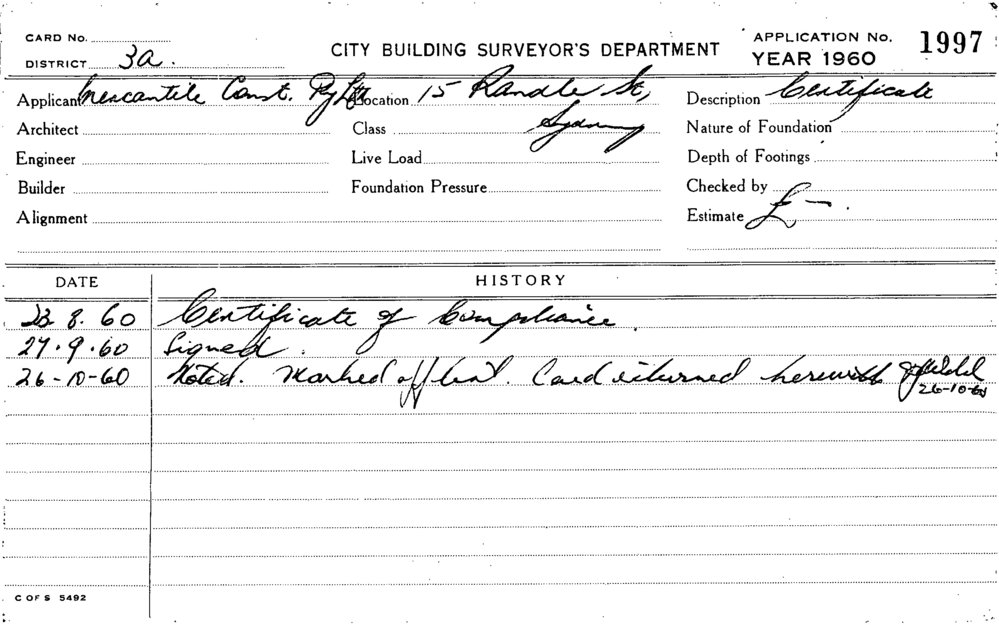 CARD No.
DISTRICT 3a.
CITY BUILDING SURVEYOR'S DEPARTMENT
APPLICATION No. 1997
YEAR 1960
Applicant Mercantile Const. Pty Ltd Location 15 Randle St, Description Certificate
Architect Class Sydney Nature of Foundation
Engineer Live Load Depth of Footings
Builder Foundation Pressure Checked by
Alignment Estimate £ —.
DATE HISTORY
23. 8. 60 Certificate of Compliance.
27.9.60 Signed.
26-10-60 Noted. Marked off list. Card returned herewith 26-10-60
C OF S 5492